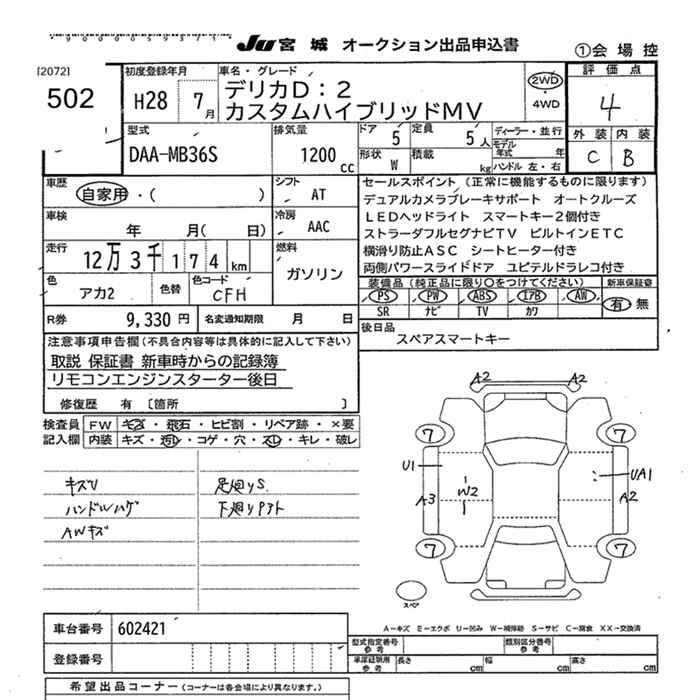 JU 宮城 オークション出品申込書
①会場控
[2072]
502
初度登録年月
H28 7月
車名・グレード
デリカD:2
カスタムハイブリッドMV
2WD
4WD
評価点
4
外装 内装
C B
型式
DAA-MB36S
排気量
1200cc
ドア 5
定員 5人
ディーラー・並行
モデル年式 年
形状 W
積載 kg
ハンドル 左・右
車歴
自家用・( )
シフト
AT
セールスポイント (正常に機能するものに限ります)
デュアルカメラブレーキサポート オートクルーズ
LEDヘッドライト スマートキー2個付き
ストラーダフルセグナビTV ビルトインETC
横滑り防止ASC シートヒーター付き
両側パワースライドドア ユピテルドラレコ付き
車検
年 月( 日)
冷房
AAC
走行
12万3千174km
燃料
ガソリン
色
アカ2
色替
色コード
CFH
装備品 (純正品に限り○をつけてください)
新車保証書
PS PW ABS エアB AW
SR ナビ TV カワ
有 無
R券 9,330円
名変通知期限 月 日
後日品
スペアスマートキー
注意事項申告欄(不具合内容等は具体的に記入して下さい)
取説 保証書 新車時からの記録簿
リモコンエンジンスターター後日
修復歴 有 〔箇所 〕
検査員記入欄
FW キズ・飛石・ヒビ割・リペア跡・×要
内装 キズ・汚レ・コゲ・穴・スレ・キレ・破レ
キズU
ハンドルハゲ
AWキズ
足廻りS.
下廻りサクト
A2 A2
7 7
U1 UA1
A3 W2 A2
7 7
スペア
A-キズ E-エクボ U-凹み W-補修跡 S-サビ C-腐食 XX-交換済
車台番号 602421
登録番号
型式指定番号 参考
類別区分番号 参考
車庫証明用 参考
長さ cm
幅 cm
高さ cm
希望出品コーナー (コーナーは各会場により異なります。)